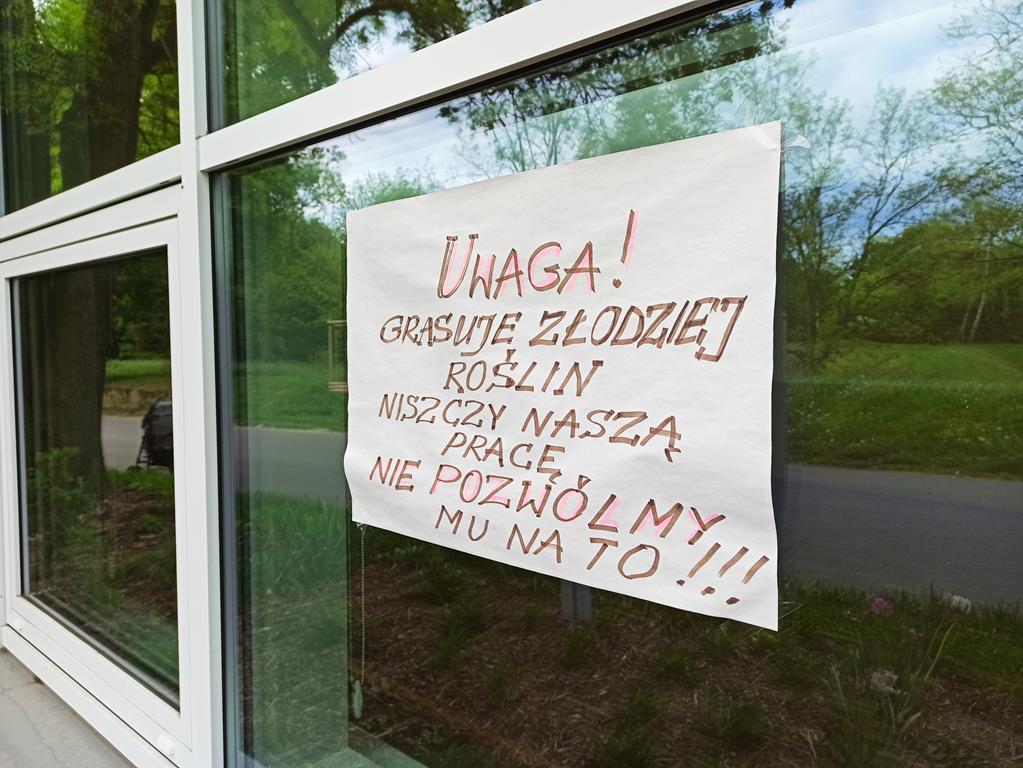 UWAGA!
GRASUJE ZŁODZIEJ
ROŚLIN
NISZCZY NASZĄ
PRACĘ
NIE POZWÓLMY
MU NA TO!!!